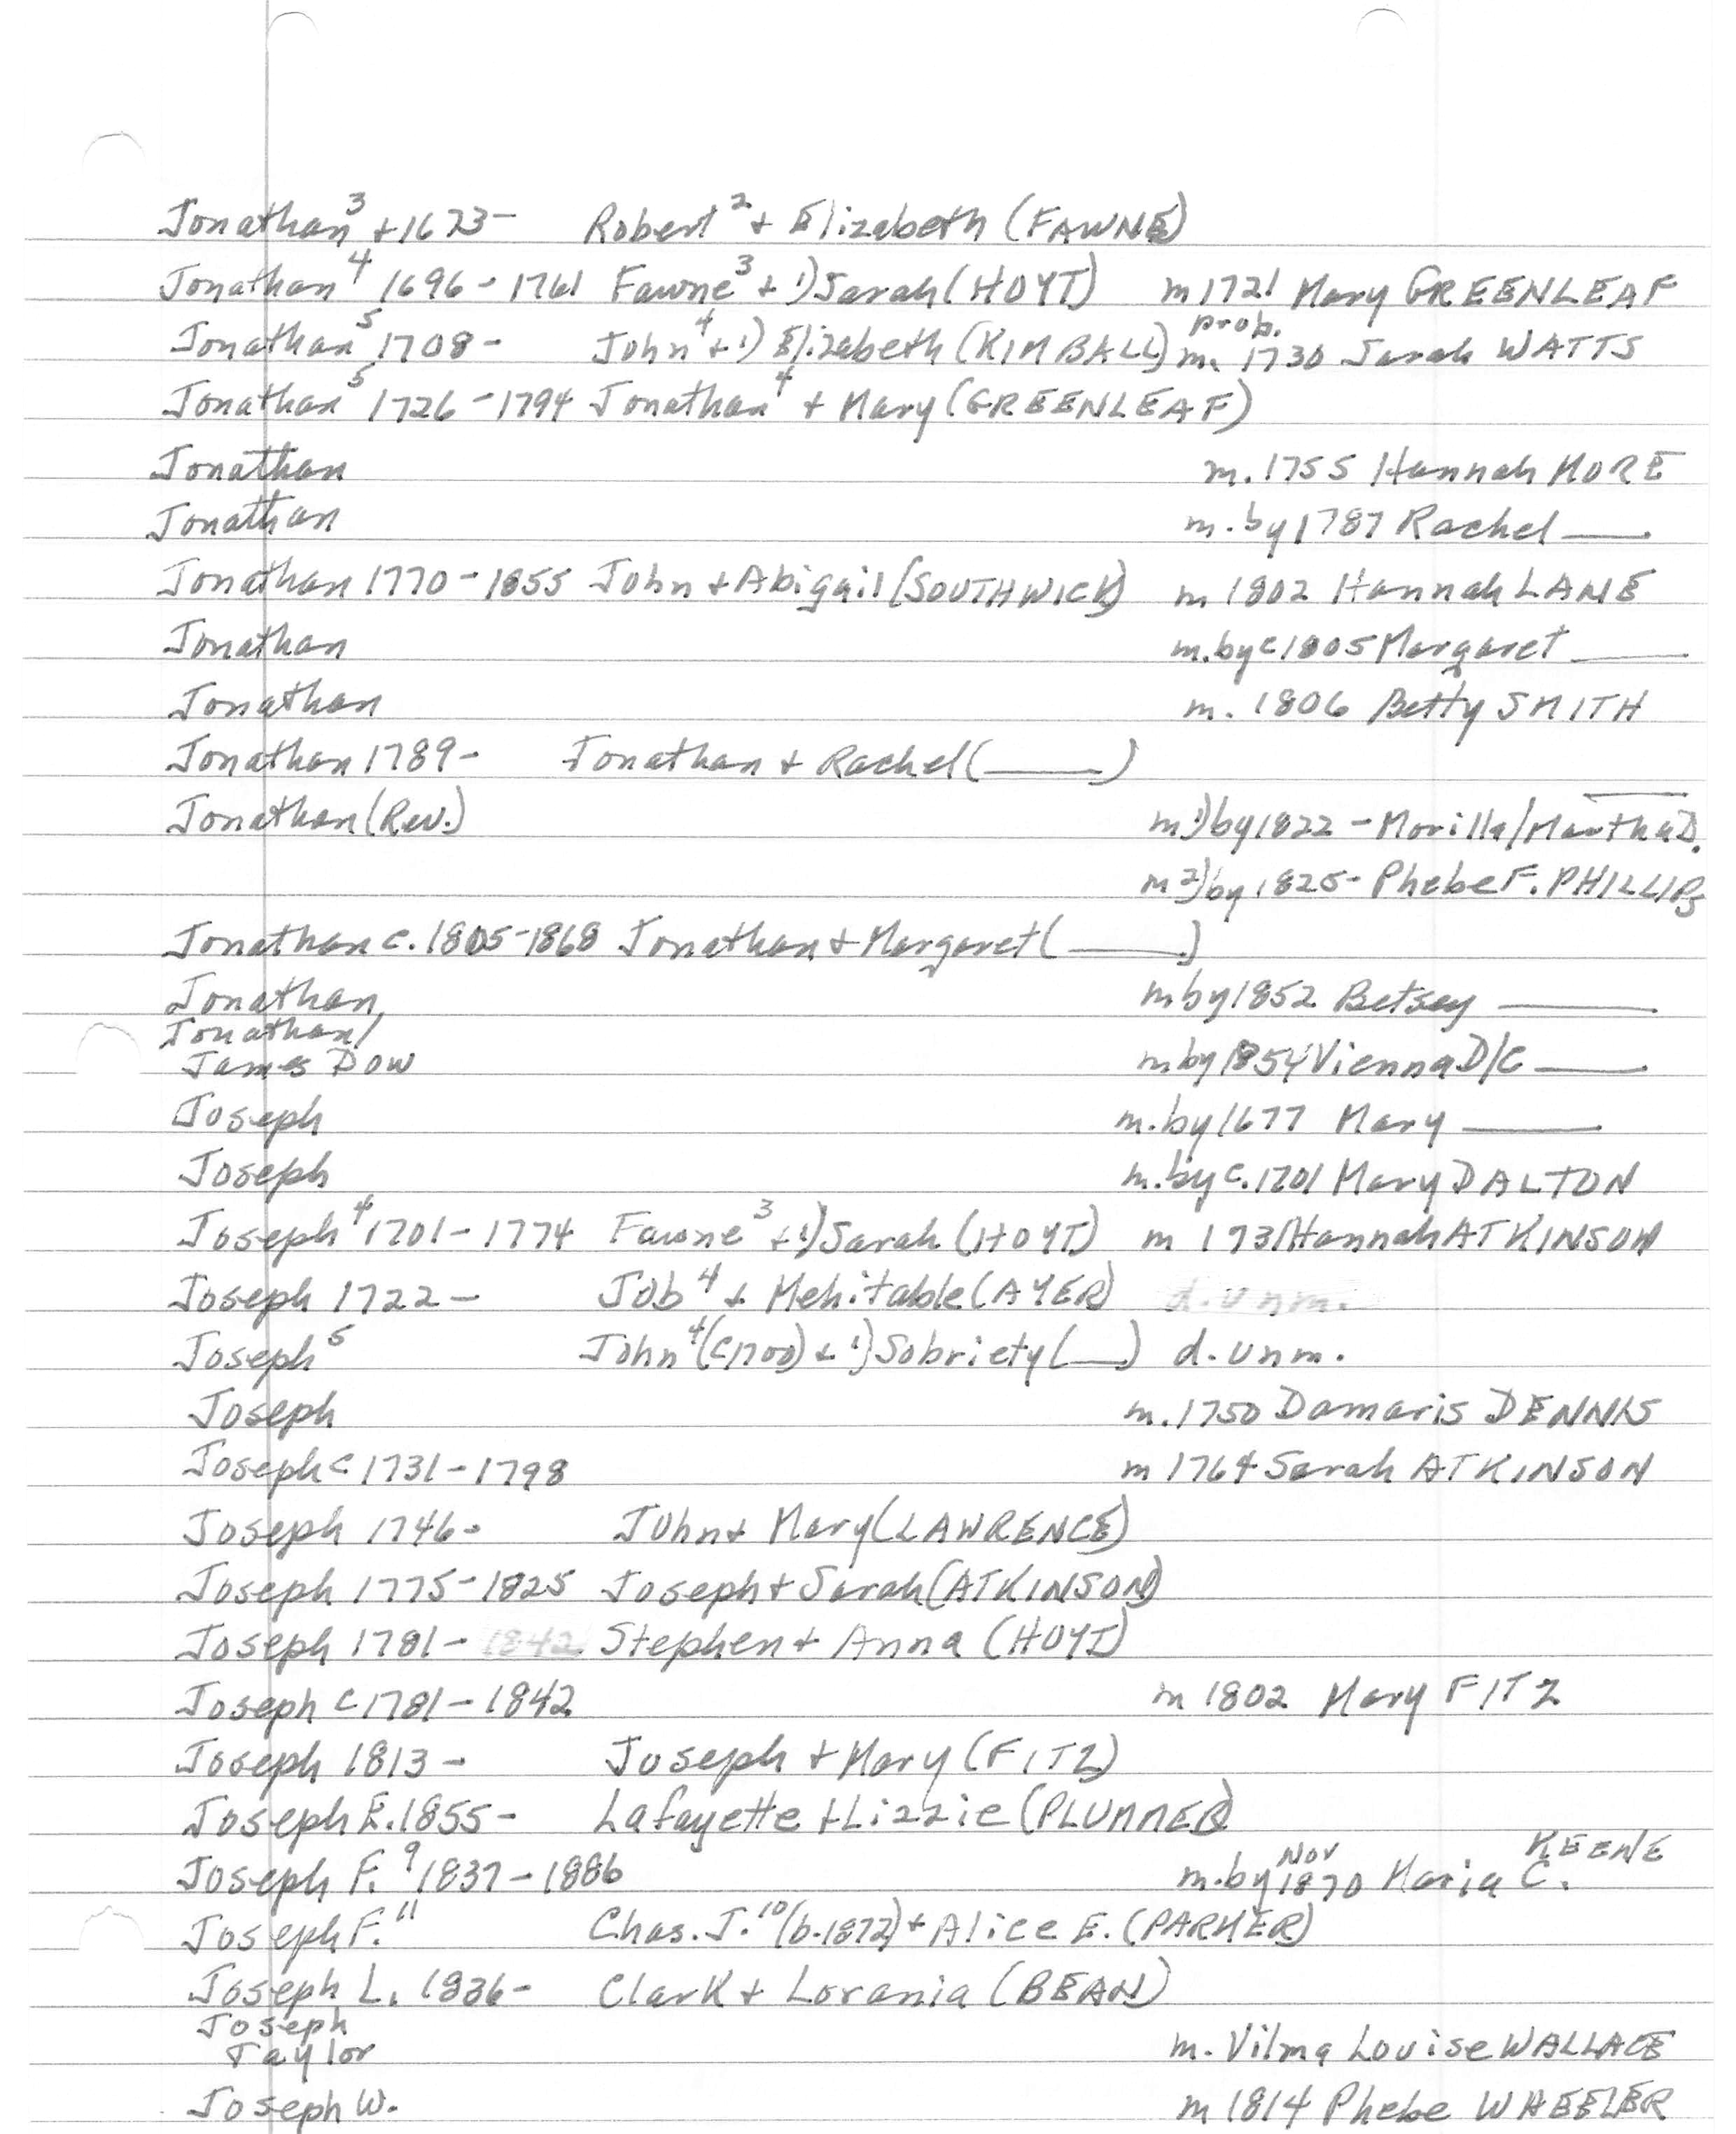 Jonathan³ +1673- Robert² + Elizabeth (FAWNE)
Jonathan⁴ 1696-1761 Fawne³ + 1) Sarah (HOYT) m 1721 Mary GREENLEAF
Jonathan⁵ 1708- John⁴ + 1) Elizabeth (KIMBALL) prob. m. 1730 Sarah WATTS
Jonathan⁵ 1726-1794 Jonathan⁴ + Mary (GREENLEAF)
Jonathan m. 1755 Hannah MORE
Jonathan m. by 1787 Rachel ____
Jonathan 1770-1855 John + Abigail (SOUTHWICK) m 1802 Hannah LANE
Jonathan m. by c1805 Margaret ____
Jonathan m. 1806 Betty SMITH
Jonathan 1789- Jonathan + Rachel (____)
Jonathan (Rev.) m 1) by 1822 - Morilla/Martha D. ____
m 2) by 1825- Phebe F. PHILLIPS
Jonathan c. 1805-1868 Jonathan + Margaret (____)
Jonathan m by 1852 Betsey ____
Jonathan/
James Dow m by 1854 Vienna D/C ____
Joseph m. by 1677 Mary ____
Joseph m. by c. 1701 Mary DALTON
Joseph⁴ 1701-1774 Fawne³ + 1) Sarah (HOYT) m 1731 Hannah ATKINSON
Joseph 1722- Job⁴ + Mehitable (AYER) d. unm.
Joseph⁵ John⁴ (c1700) + 1) Sobriety (__) d. unm.
Joseph m. 1750 Damaris DENNIS
Joseph c 1731-1798 m 1764 Sarah ATKINSON
Joseph 1746- John + Mary (LAWRENCE)
Joseph 1775-1825 Joseph + Sarah (ATKINSON)
Joseph 1781- 1842 Stephen + Anna (HOYT)
Joseph c 1781-1842 m 1802 Mary FITZ
Joseph 1813- Joseph + Mary (FITZ)
Joseph E. 1855- Lafayette + Lizzie (PLUMMER)
Joseph F.⁹ 1837-1886 m. by Nov 1870 Maria C. KEENE
Joseph F.¹¹ Chas. J.¹⁰ (b. 1872) + Alice E. (PARKER)
Joseph L. 1836- Clark + Lorania (BEAN)
Joseph
Taylor m. Vilma Louise WALLACE
Joseph W. m 1814 Phebe WHEELER